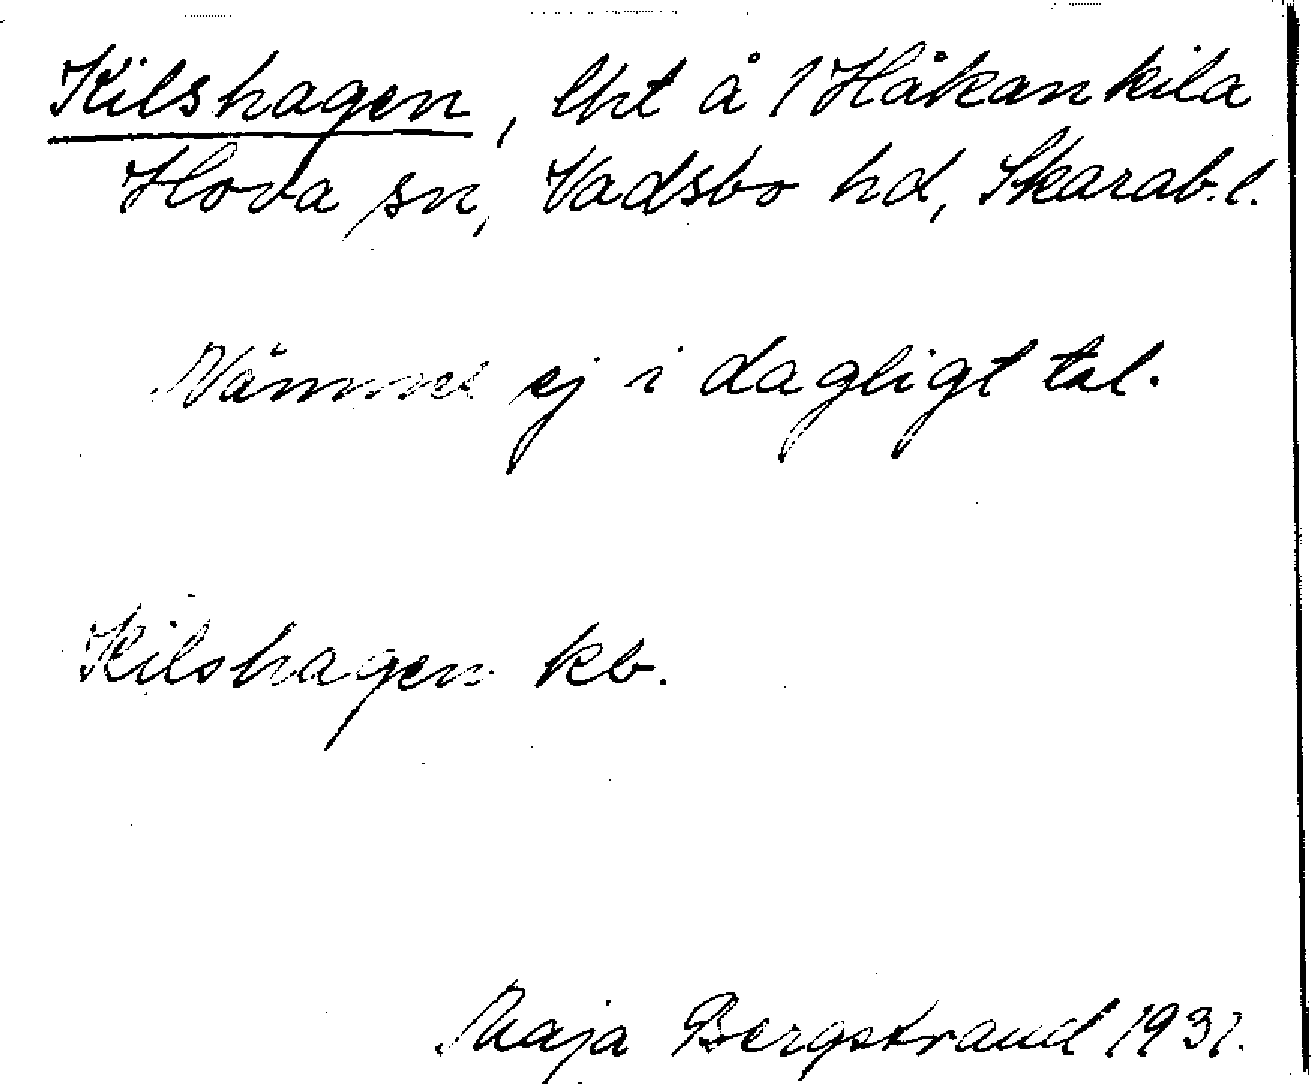 Kilshagen, lht å 1 Håkankila
Hova sn, Vadsbo hd, Skarab.l.
Nämnes ej i dagligt tal.
Kilshagen kb.
Maja Bergstrand 1931.